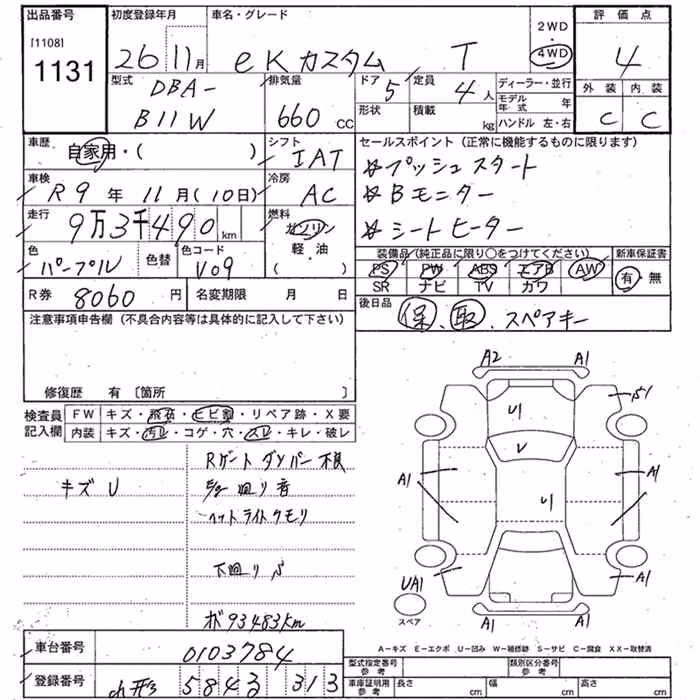 出品番号 初度登録年月 車名・グレード 2WD 評価点
[1108] 1131 26年 11月 eKカスタム T 4WD 4
型式 排気量 ドア 定員 ディーラー・並行 外装 内装
DBA-B11W 660cc 5 4人 モデル年式 年 C C
形状 積載 kg ハンドル 左・右
車歴 自家用・( ) シフト IAT
セールスポイント (正常に機能するものに限ります)
☆プッシュスタート
車検 R9年 11月(10日) 冷房 AC
☆Bモニター
走行 9万3千490km 燃料 ガソリン 軽・油 ( )
☆シートヒーター
色 パープル 色替 色コード V09
装備品(純正品に限り○をつけてください) 新車保証書
PS PW ABS エアB AW 有・無
SR ナビ TV カワ
R券 8060円 名変期限 月 日
後日品 保、取、スペアキー
注意事項申告欄 (不具合内容等は具体的に記入して下さい)
修復歴 有 〔箇所 〕
検査員記入欄 FW キズ・飛石・ヒビ割・リペア跡・X要
内装 キズ・汚レ・コゲ・穴・スレ・キレ・破レ
Rゲートダンパー不良
キズU
廻り音
ヘットライトクモリ
下廻りS
メ93483km
A2 A1
U1 S1
V
A1 U1 A1
UA1 A1
スペア A1 A1
A-キズ E-エクボ U-凹み W-補修跡 S-サビ C-腐食 XX-取替済
車台番号 0103784
型式指定番号 参考 類別区分番号 参考
登録番号 5843 313
車庫証明用 参考 長さ cm 幅 cm 高さ cm